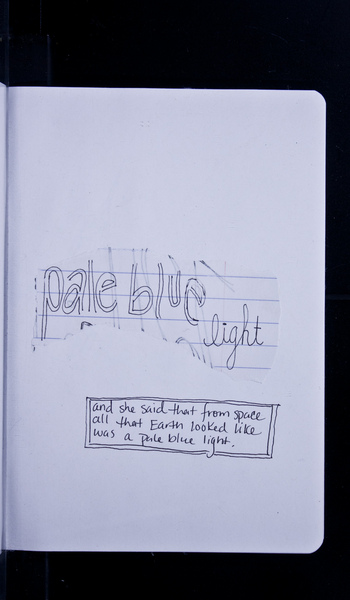 pale blue
light
and she said that from space
all that Earth looked like
was a pale blue light.